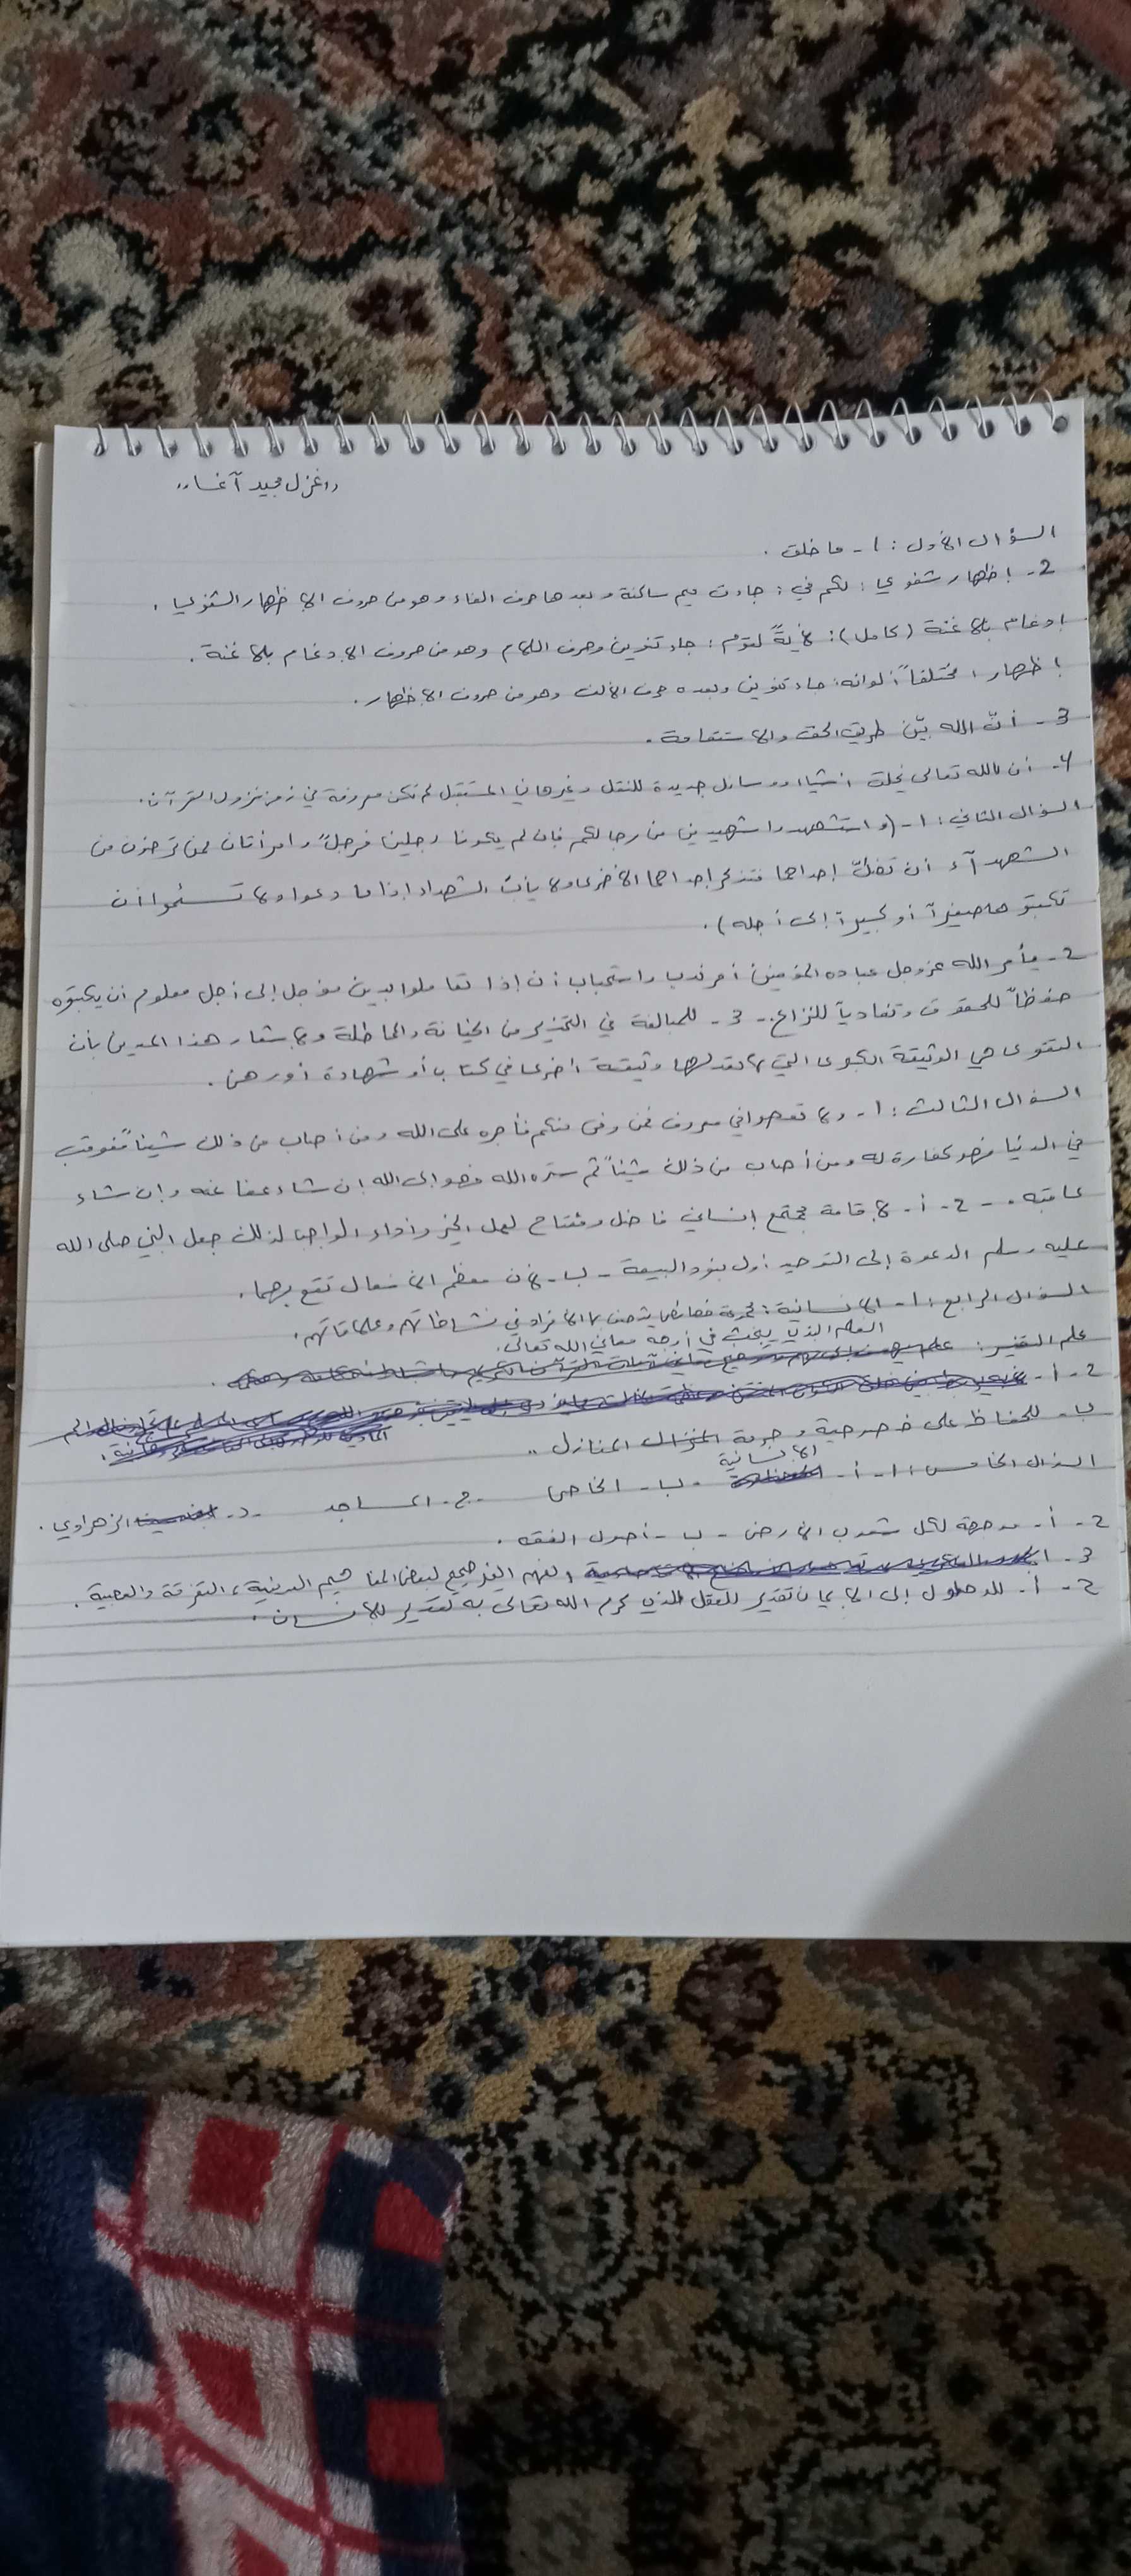 ,,غزل مجيد آغا,,
السؤال الأول: 1- ما خلق .
2- إظهار شفوي: لكم في: جاءت ميم ساكنة وبعدها حرف الفاء وهو من حروف الإظهار الشفوي .
إدغام بلا غنة (كامل): لأيةً لقوم: جاء تنوين وحرف اللام وهو من حروف الإدغام بلا غنة .
إظهار: مختلفاً ألوانه: جاء تنوين وبعده حرف الألف وهو من حروف الإظهار .
3- أنّ الله بيّن طريق الحق والاستقامة .
4- أن الله تعالى يخلق أشياء ووسائل جديدة للنقل وغيرها في المستقبل لم تكن معروفة في زمن نزول القرآن .
السؤال الثاني: 1- (واستشهدوا شهيدين من رجالكم فإن لم يكونا رجلين فرجلٌ وامرأتان ممن ترضون من
الشهدآء أن تضلّ إحداهما فتذكر إحداهما الأخرى ولا يأب الشهداء إذا ما دعوا ولا تسئموا أن
تكتبوها صغيراً أو كبيراً إلى أجله) .
2- يأمر الله عز وجل عباده المؤمنين أمر ندب واستحباب أن إذا تعاملوا بدين مؤجل إلى أجل معلوم أن يكتبوه
حفظاً للحقوق وتفادياً للنزاع. - 3- للمبالغة في التحذير من الخيانة والمماطلة ولإشعار هذا المدين بأن
التقوى هي الوثيقة الكبرى التي لا تعدلها وثيقة أخرى في كتاب أو شهادة أو رهن .
السؤال الثالث: 1- ولا تعصوا في معروف فمن وفى منكم فأجره على الله ومن أصاب من ذلك شيئاً فعوقب
في الدنيا فهو كفارة له ومن أصاب من ذلك شيئاً ثم ستره الله فهو إلى الله إن شاء عفا عنه وإن شاء
عاقبه . - 2- أ- لإقامة مجتمع إنساني فاضل ومفتاح لعمل الخير وأداء الواجب لذلك جعل النبي صلى الله
عليه وسلم الدعوة إلى التوحيد أول بنود البيعة - ب- لأن معظم الأفعال تقع بهما .
السؤال الرابع: 1- الإنسانية: مجموعة خصائص يتصف بها الأفراد في نشاطاتهم وعلاقاتهم .
علم التفسير: العلم الذي يبحث في أوجه معاني الله تعالى .
2- أ-
ب- للحفاظ على خصوصية وحرمة المنازل ..
السؤال الخامس: 1- أ- الإنسانية - ب- الخاص - ج- المساجد - د- الزهراوي .
2- أ- موجهة لكل شعوب الأرض - ب- أصول الفقه .
3- الفهم الغير صحيح لبعض المفاهيم الدينية، التفرقة والعصبية .
2- أ- للوصول إلى الإيمان تقدير للعقل الذي كرم الله تعالى به تقدير للإنسان .